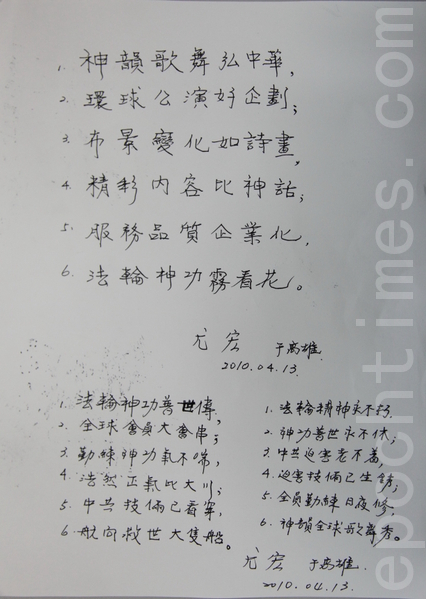 1. 神韻歌舞弘中華,
2. 環球公演好企劃;
3. 布景變化如詩畫,
4. 精彩內容比神話;
5. 服務品質企業化,
6. 法輪神功霧看花。
尤宏 于高雄
2010.04.13.
1. 法輪神功普世傳,
2. 全球會員大會串;
3. 勤練神功氣不喘,
4. 浩然正氣比大川;
5. 中共技倆已看穿,
6. 航向救世大隻船。
1. 法輪精神永不朽,
2. 神功普世永不休;
3. 中共迫害老不羞,
4. 迫害技倆已生銹;
5. 全員勤練日夜修,
6. 神韻全球歌舞秀。
尤宏 于高雄
2010.04.13.
epochtimes.com